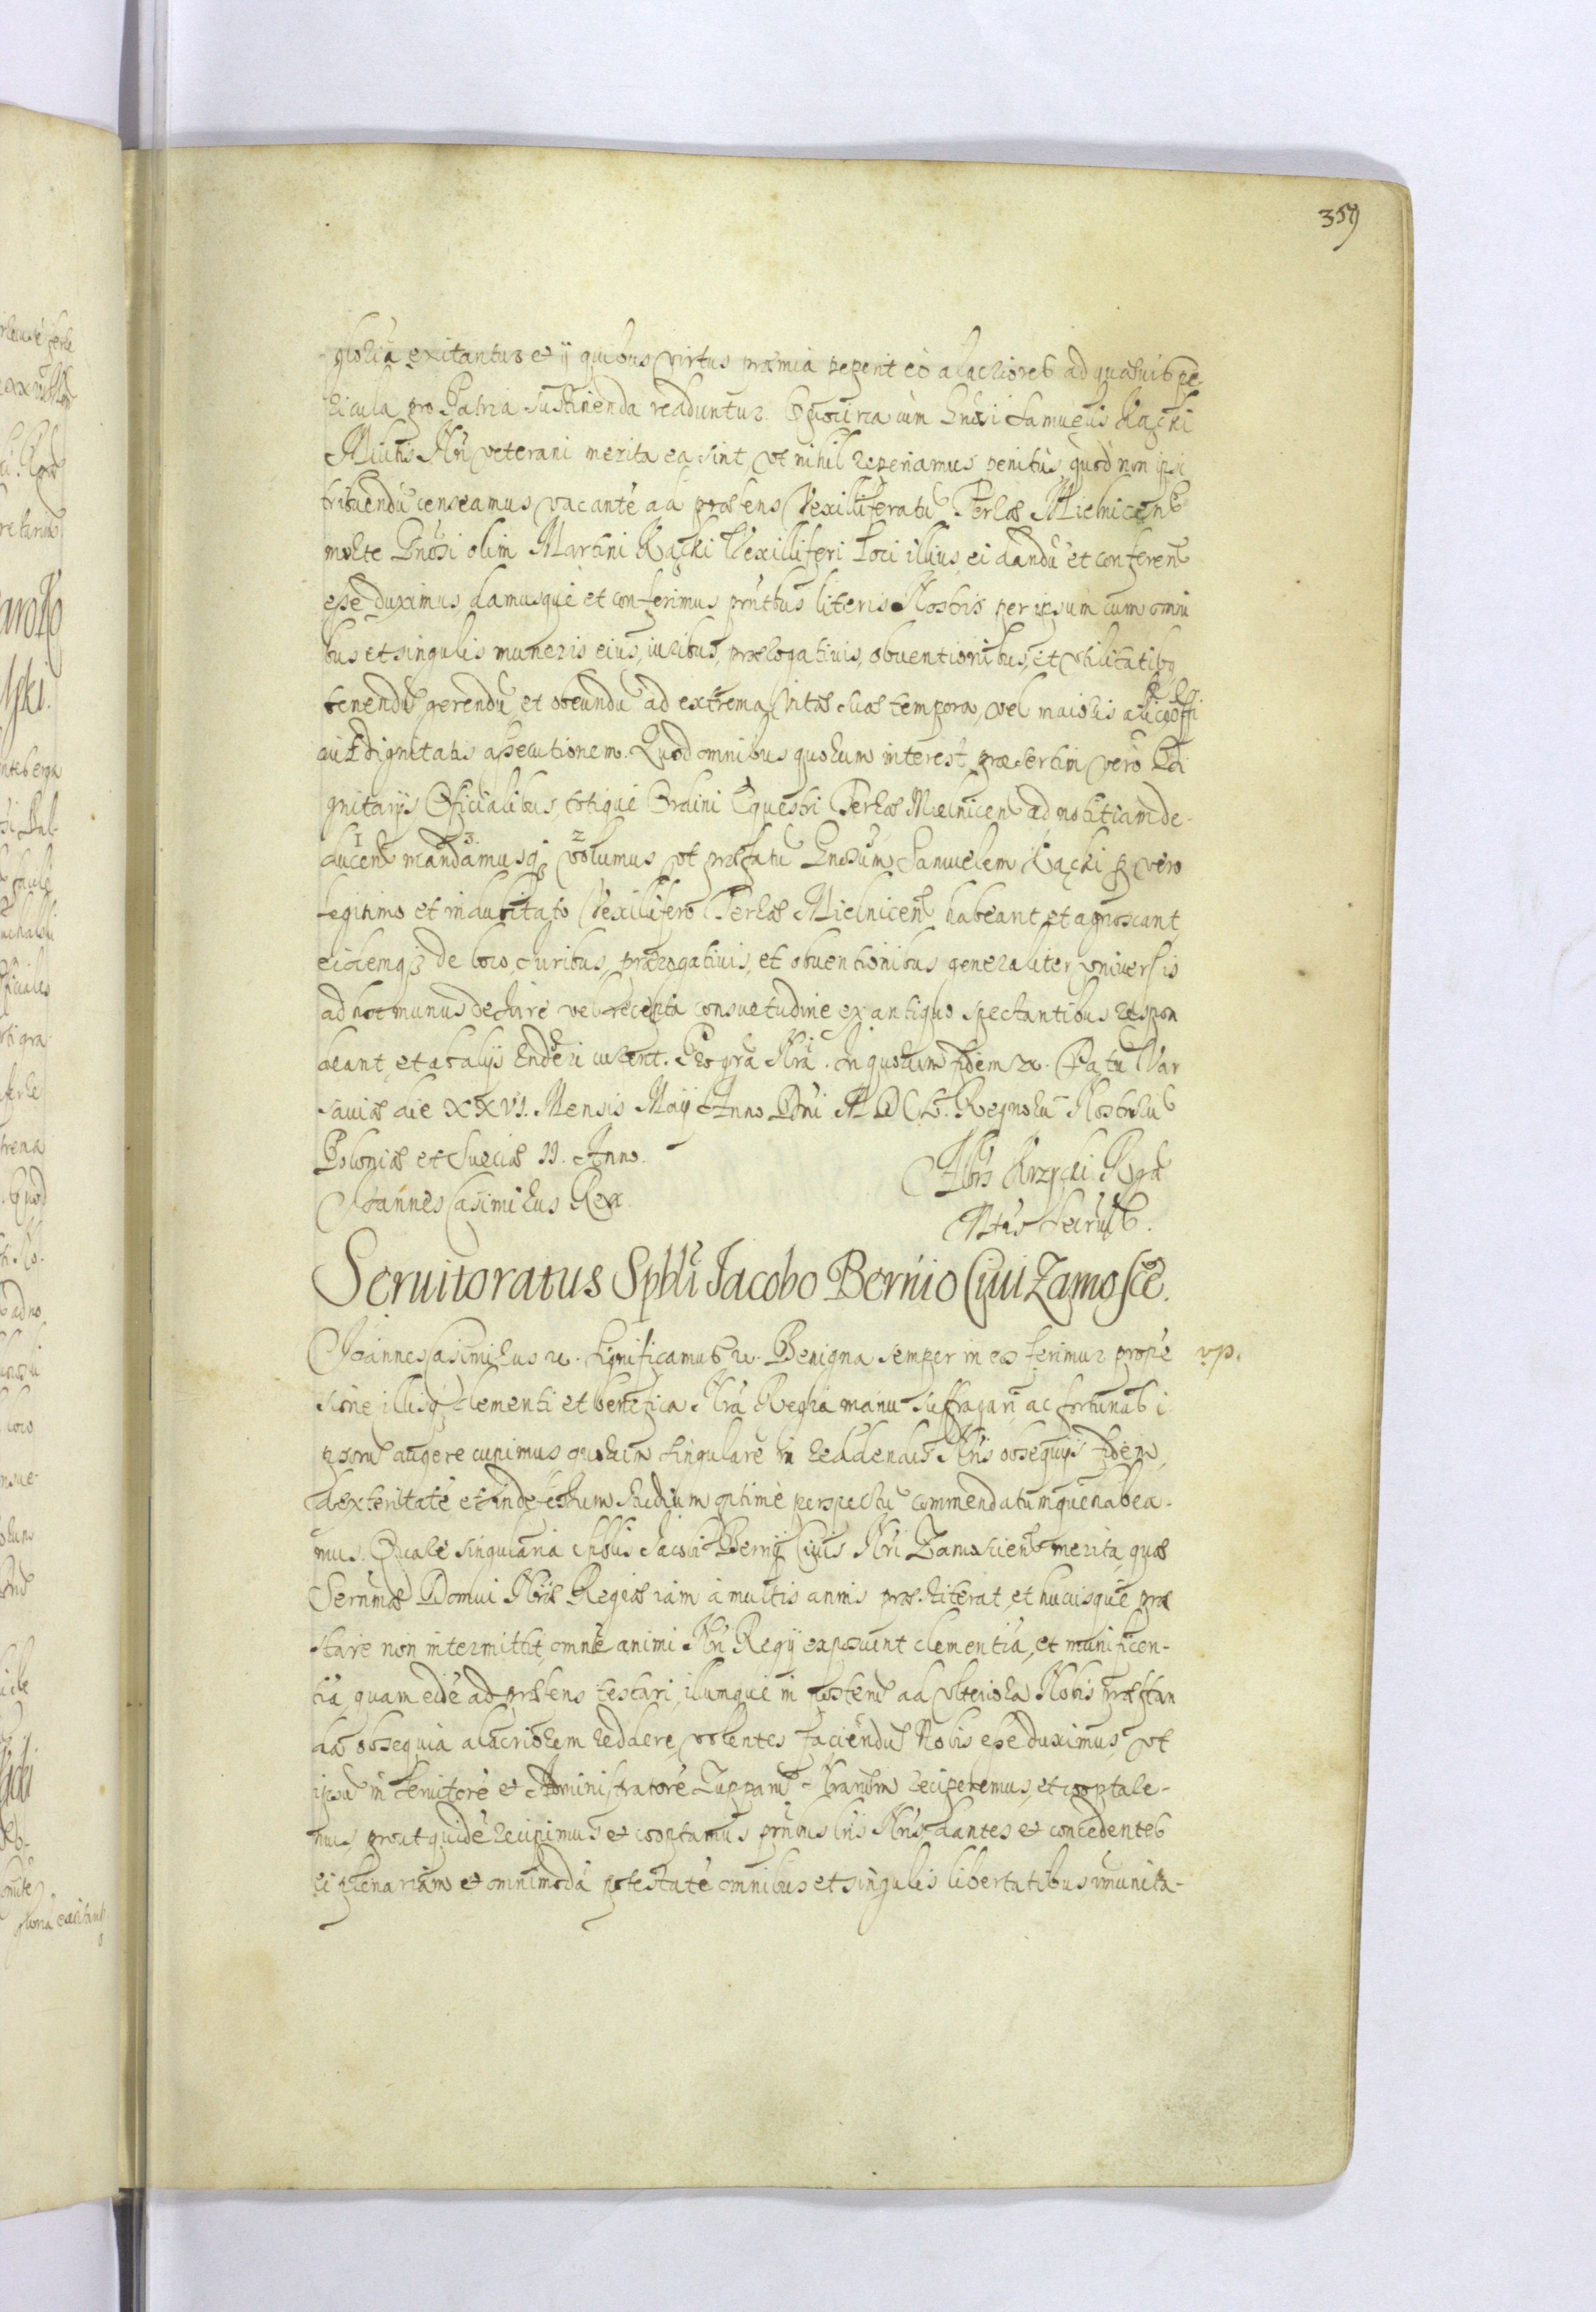 359
gloria exitantur et ij quibus virtus præmia peperit eò alacriores ad quævis pe-
ricula pro Patria sustinenda redduntur. Quocirca cùm Gnosi Samuelis Kącki
Militis Nri veterani merita ea sint, vt nihil reperiamus penitùs quod non ipsi
tribuendũ censeamus, vacantẽ ad præsens Vexilliferatũ Terræ Mielnicen
morte Gnosi olim Martini Kącki Vexilliferi loci illius, ei dandũ et conferen
esse duximus, damusque et conferimus pñtibus literis Nostris per ipsum cum omni
bus et singulis muneris eius, iuribus, prærogativis, obventionibus, et vtilitatibq
tenendũ gerendũ et obeundũ ad extrema vitæ suæ tempora, vel maioris alicq offi
aut dignitatis assecutionem. Quod omnibus quorum interest, præsertim verò Di
gnitarijs Officialibus, totique Ordini Equestri Terræ Mielnicen ad notitiam de-
1 3 2
ducen mandamusq volumus vt præfatũ Gnosum Samuelem Kącki p vero
legitimo et indubitato Vexillifero Terræ Mielnicen habeant et agnoscant,
eidemq3 de loco, iuribus, prærogativis, et obventionibus generaliter vniversis
ad hoc munus de iure vel recepta consuetudine ex antiquo spectantibus respon
deant, et ab alijs rnderi curent. Pro gra Nra. In quorum fidem &. Datũ Var
saviæ die XXVI. Mensis Maij Anno Dni MDCL. Regnorũ Nostrorũ
Poloniæ et Sueciæ II. Anno.
Joannes Casimirus Rex.
Albrs Krzycki Rgn
Mtis Secrius.
Servitoratus Spbli Jacobo Bernio Civi Zamosce.
Joannes Casimirus &. Significamus &. Benigna semper in eos ferimur prope
vp.
sione illisq clementi et benefica Nra Regia manu suffragari, ac fortunas i
psorũ augere cupimus quorum singularẽ in reddendis Nris obsequijs fidem,
dexteritatẽ et indefessum studium optimè perspectũ commendatumque habea-
mus. Quale singularia Spblis Jacobi Bernij Civis Nri Zamoscien merita, quæ
Sernmæ Domui Nræ Regiæ iam à multis annis præstiterat, et hucusque præ
stare non intermittit, omnẽ animi Nri Regij exposcunt clementiã, et munificen-
tiã, quam eidẽ ad præsens testari, illumque in posterũ ad vlteriora Nobis præstan
da obsequia alacriorem reddere volentes faciendũ Nobis esse duximus, vt
ipsũ in Servitorẽ et Administratorẽ Zupparũ Nrarum reciperemus, et cooptare-
mus, prout quidẽ recipimus et cooptamus pñtibus lris Nris, dantes et concedentes
ei plenariam et omnimodã potestatẽ omnibus et singulis libertatibus imunita-